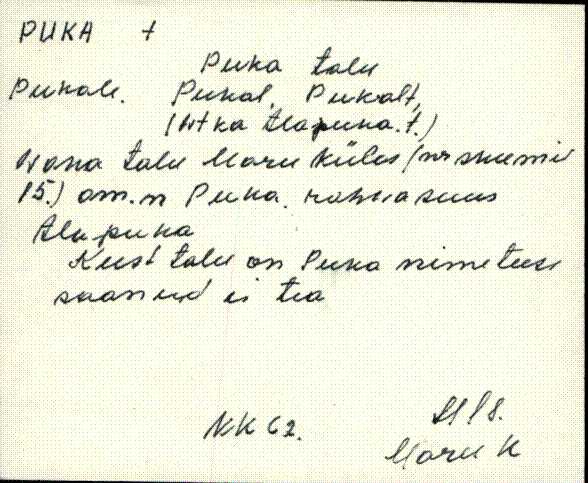 PUKA t
Puka talu
Pukale. Pukal, Pukalt,
(Vt ka Alapuka. t.)
Vana talu Maru külas (nr skeemil
15.) am.n Puka. rahvasuus
Alapuka
Kust talu on Puka nimetuse
saanud ei tea
KK 62.
Maru K